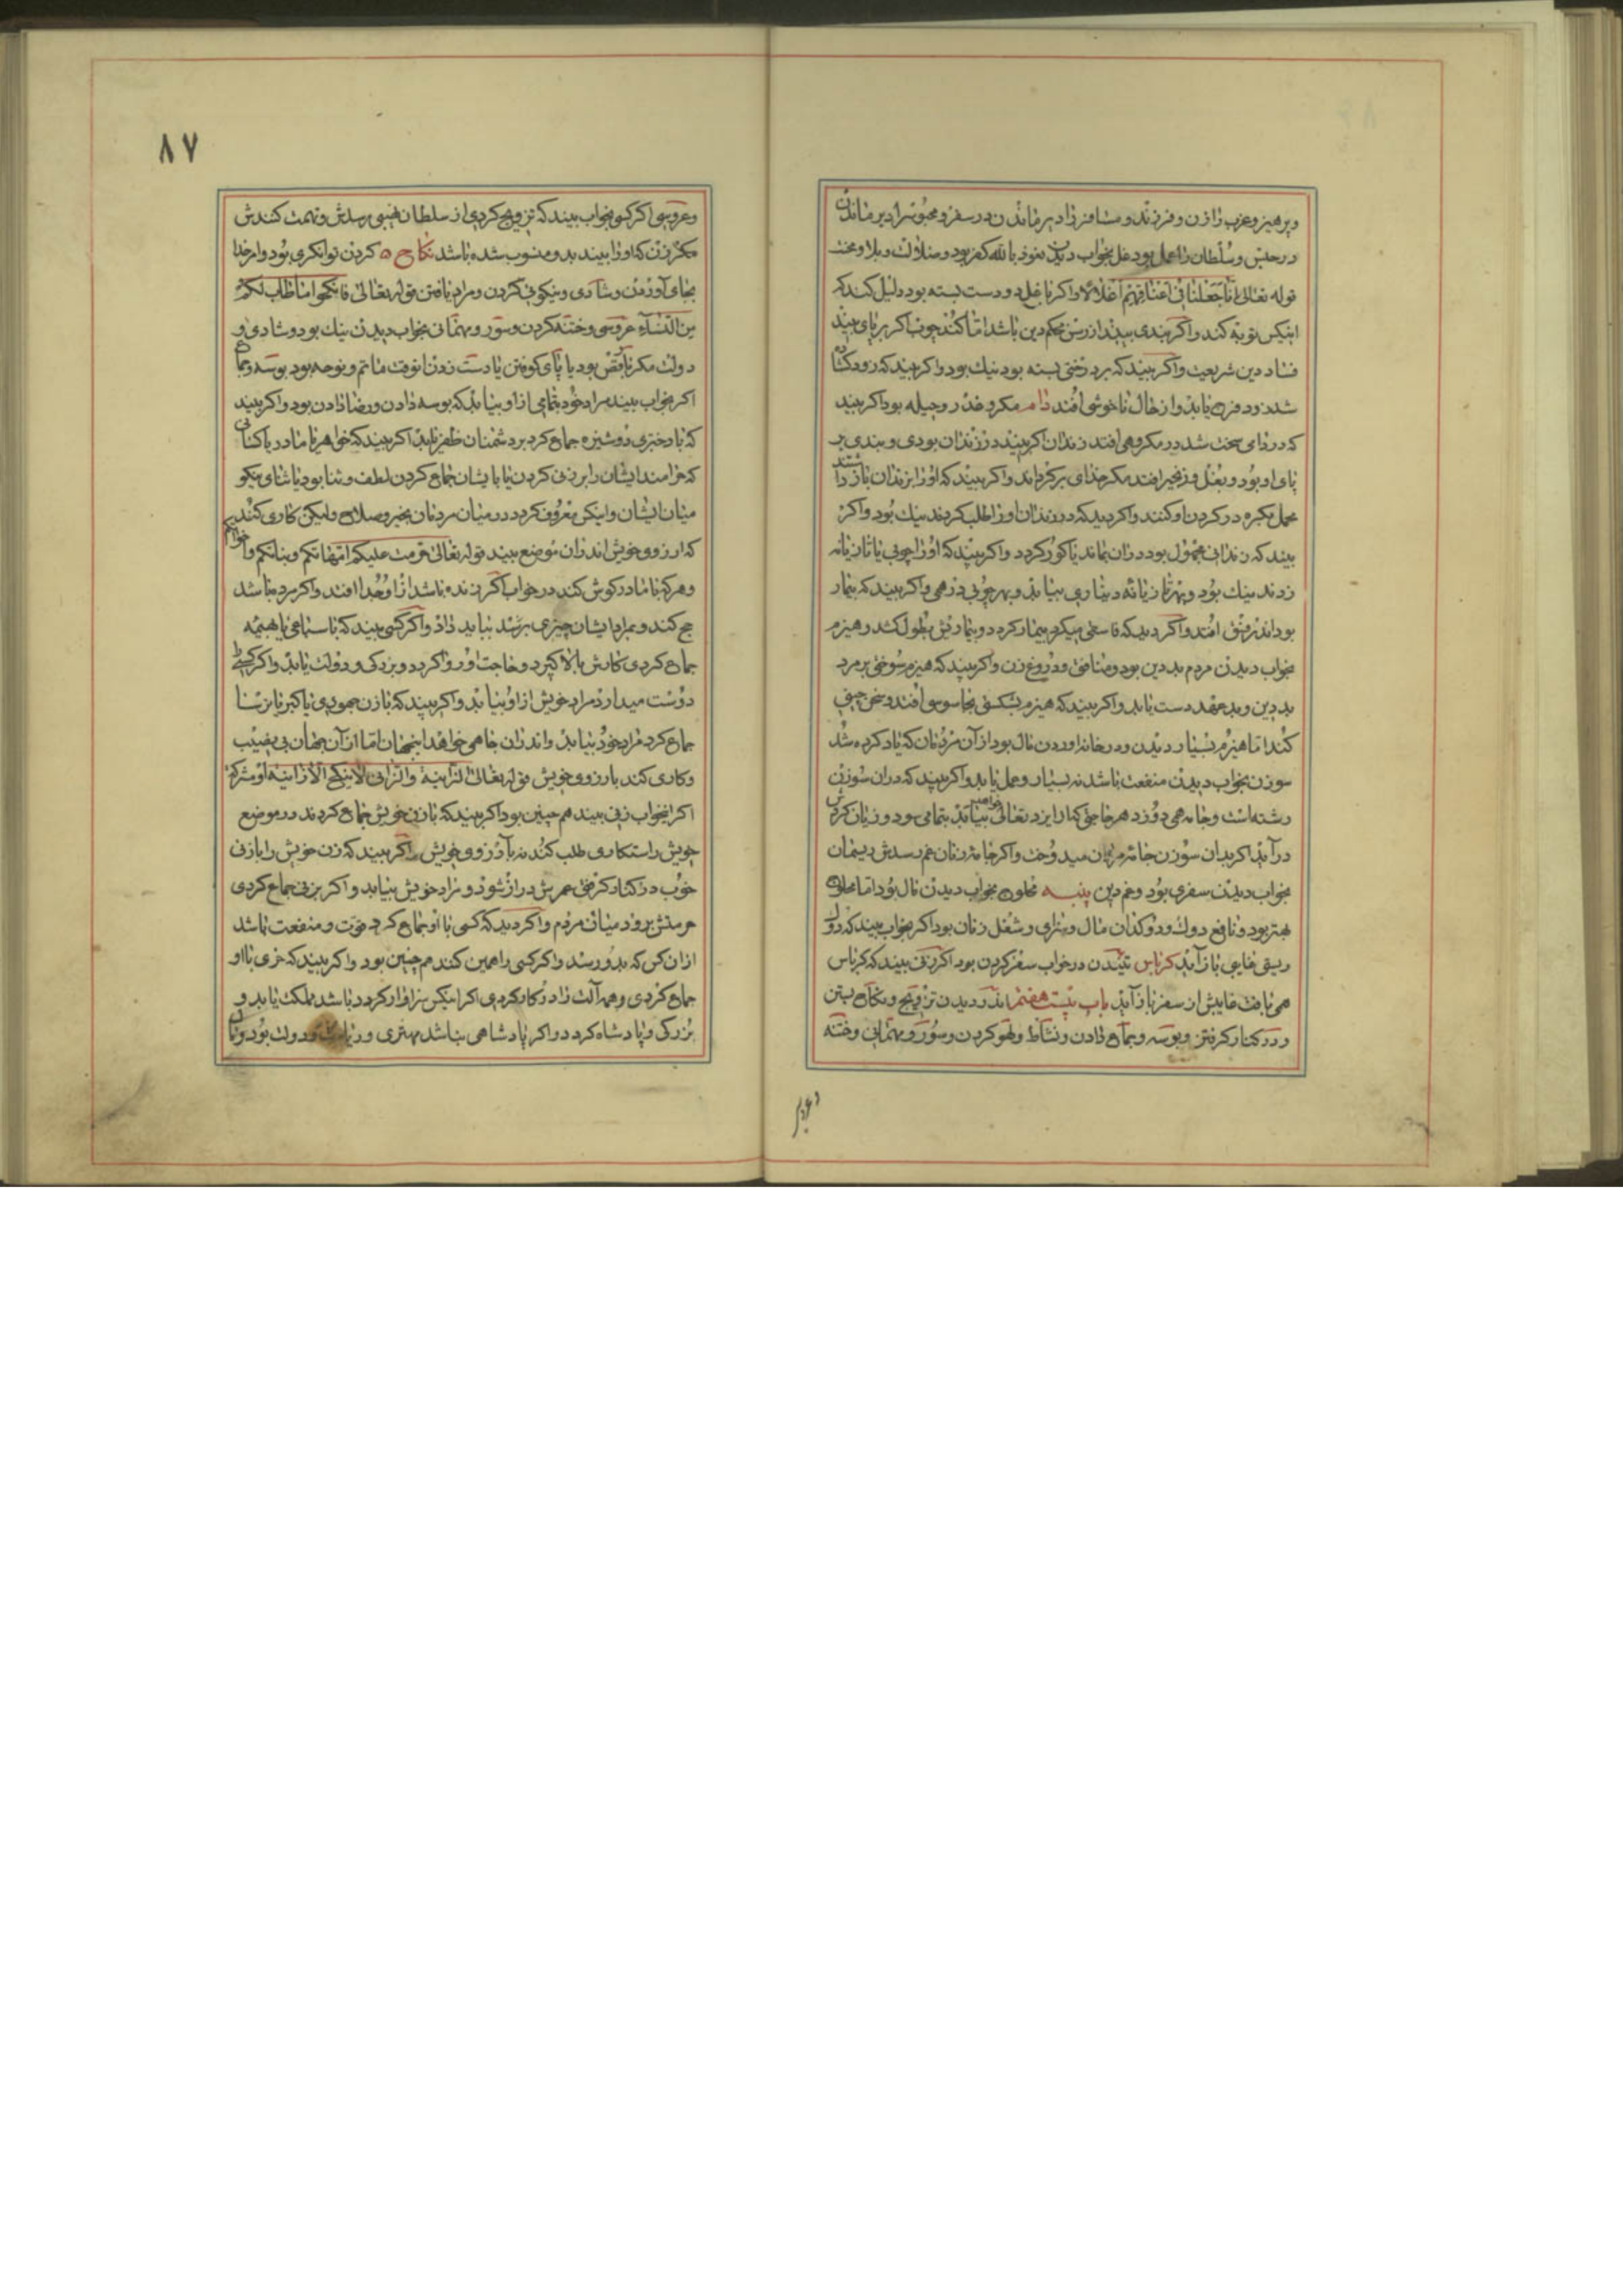 وپرهیز وعزب را زن و فرزند و مسافر را دیر ماندن در سفر و محبوس را دیر ماندن
در حبس و سلطان را عمل بود غل بخواب دیدن نعوذ بالله کفر بود و ضلالت و بلا و محنت
قوله تعالی انا جعلنا فی اعناقهم اغلالا و اکر با غل دو دست بسته بود دلیل کند که
اینکس توبه کند و اکر بندی بیند از رسن محکم دین باشد اما کنده چوب اکر بر پای بیند
فساد دین شریعت و اکر بیند که بر درختی بسته بود نیك بود و اکر بیند که زود کشاده
شد زود فرج یابد و از حال ناخوشی افتد دام مکر و غدر و حیله بود اکر بیند
که در دامی سخت شد در مکروهی افتد زندان اکر بیند در زندان بودی و بندی بر
پای او بود و بغل و زنجیر افتد مکر خدای برکرداند و اکر بیند که او را بزندان باز داشتند
بیند که زندانی مجهول بود در آن بماند یا کور کردد و اکر بیند که او را چوبی یا تازیانه
زدند نیك بود و بهر تازیانه دیناری بیابد و بهر چوبی درهمی و اکر بیند که بیمار
بخواب دیدن مردم بد دین بود و منافق و دروغ زن و اکر بیند که هیزم سوختی بر مرد
بد دین و بد عهد دست یابد و اکر بیند که هیزم بشکستی بجاسوسی افتد و سخن چینی
کند اما هیزم بسیار دیدن و در خانه اوردن مال بود از آن مردمان که یاد کرده شد
سوزن بخواب دیدن منفعت باشد نه بسیار و عمل یابد و اکر بیند که در آن سوزن
رشته است و جامه همی دوزد هر حاجتی که از ایزد تعالی خواهد بیابد بتمامی سود و زیان کردش
در آید اکر بدان سوزن جامه مردمان میدوخت و اکر جامه زنان غم رسدش ریسمان
بخواب دیدن سفری بود و غم دین پنبه محلوج بخواب دیدن مال بود اما محلوج
بهتر بود و نافع دوك و دوکدان مال و سرای و شغل زنان بود اکر بخواب بیند که دوك
ریستی غایبی باز آید کرباس تنیدن در خواب سفر کردن بود اکر زنی بیند که کرباس
همی بافت غایبش از سفر باز آید باب بیست هفتم اندر دیدن تزویج و نکاح بستن
و در کنار کرفتن و بوسه و جماع دادن و نشاط و لهو کردن و سور و مهمانی و ختنه
۸۷
و عروسی اکر کسی بخواب بیند که تزویج کردی از سلطان هیبتی رسدش و تهمت کنندش
مکر زن که او را بیند بد و منسوب شده باشد نکاح کردن توانکری بود و امر خدا
بجای آوردن و شادی و نیکوئی کردن و مراد یافتن قوله تعالی فانکحوا ما طاب لکم
من النساء عروسی و ختنه کردن و سور و مهمانی بخواب دیدن نیك بود و شادی و
دولت مکر با رقص بود یا پای کوفتن یا دست زدن انوقت ماتم و نوحه بود بوسه و جماع
اکر بخواب بیند مراد خود بتمامی از او بیابد که بوسه دادن و رضا دادن بود و اکر بیند
که با دختری دوشیزه جماع کرد بر دشمنان ظفر یابد اکر بیند که خواهر یا مادر یا کسانی
که حرامند ایشان را بزنی کردن یا با ایشان جماع کردن لطف و ثنا بود یا ثنای نیکو
میان ایشان و اینکس معروف کردد در میان مردمان بخیر و صلاح ولیکن کاری کند
که ارزوی خویش اندر آن موضع بیند قوله تعالی حرمت علیکم امهاتکم و بناتکم و اخواتکم
حج کند و بمراد ایشان چیزی برسد بباید داد و اکر کسی بیند که با سباعی یا بهیمه
جماع کردی کارش بالا کیرد و حاجت او روا کردد و بزرکی و دولت یابد و اکر کسی
دوست میدارد مراد خویش از او بیابد و اکر بیند که با زن جهودی یا کبر یا ترسا
جماع کرد مراد خود بیابد و اندر آن جاهی خواهد اینجهان اما از آن جهان بی نصیب
و کاری کند بارزوی خویش قوله تعالی الزانیة والزانی لا ینکح الا زانیة او مشرکة
اکر بخواب زنی بیند همچنین بود اکر بیند که با زن خویش جماع کردند در موضع
خویش راستکاری طلب کند نه بآرزوی خویش و اکر بیند که زن خویش را با زنی
خوب در کنار کرفتی عمرش دراز شود و مراد خویش بیابد و اکر بزنی جماع کردی
حرمتش برود میان مردم و اکر دید که کسی با او جماع کرد خوب و منفعت باشد
ازان کس که بدو رسد و اکر کسی را همین کند همچنین بود و اکر بیند که خری با او
جماع کردی و همه آلت را در کار کردی اکر اینکس سزاوار کردد باشد مملکت یابد و
بزرکی و پادشاه کردد و اکر پادشاهی نباشد مهتری و ریاست و دولت بود و تا